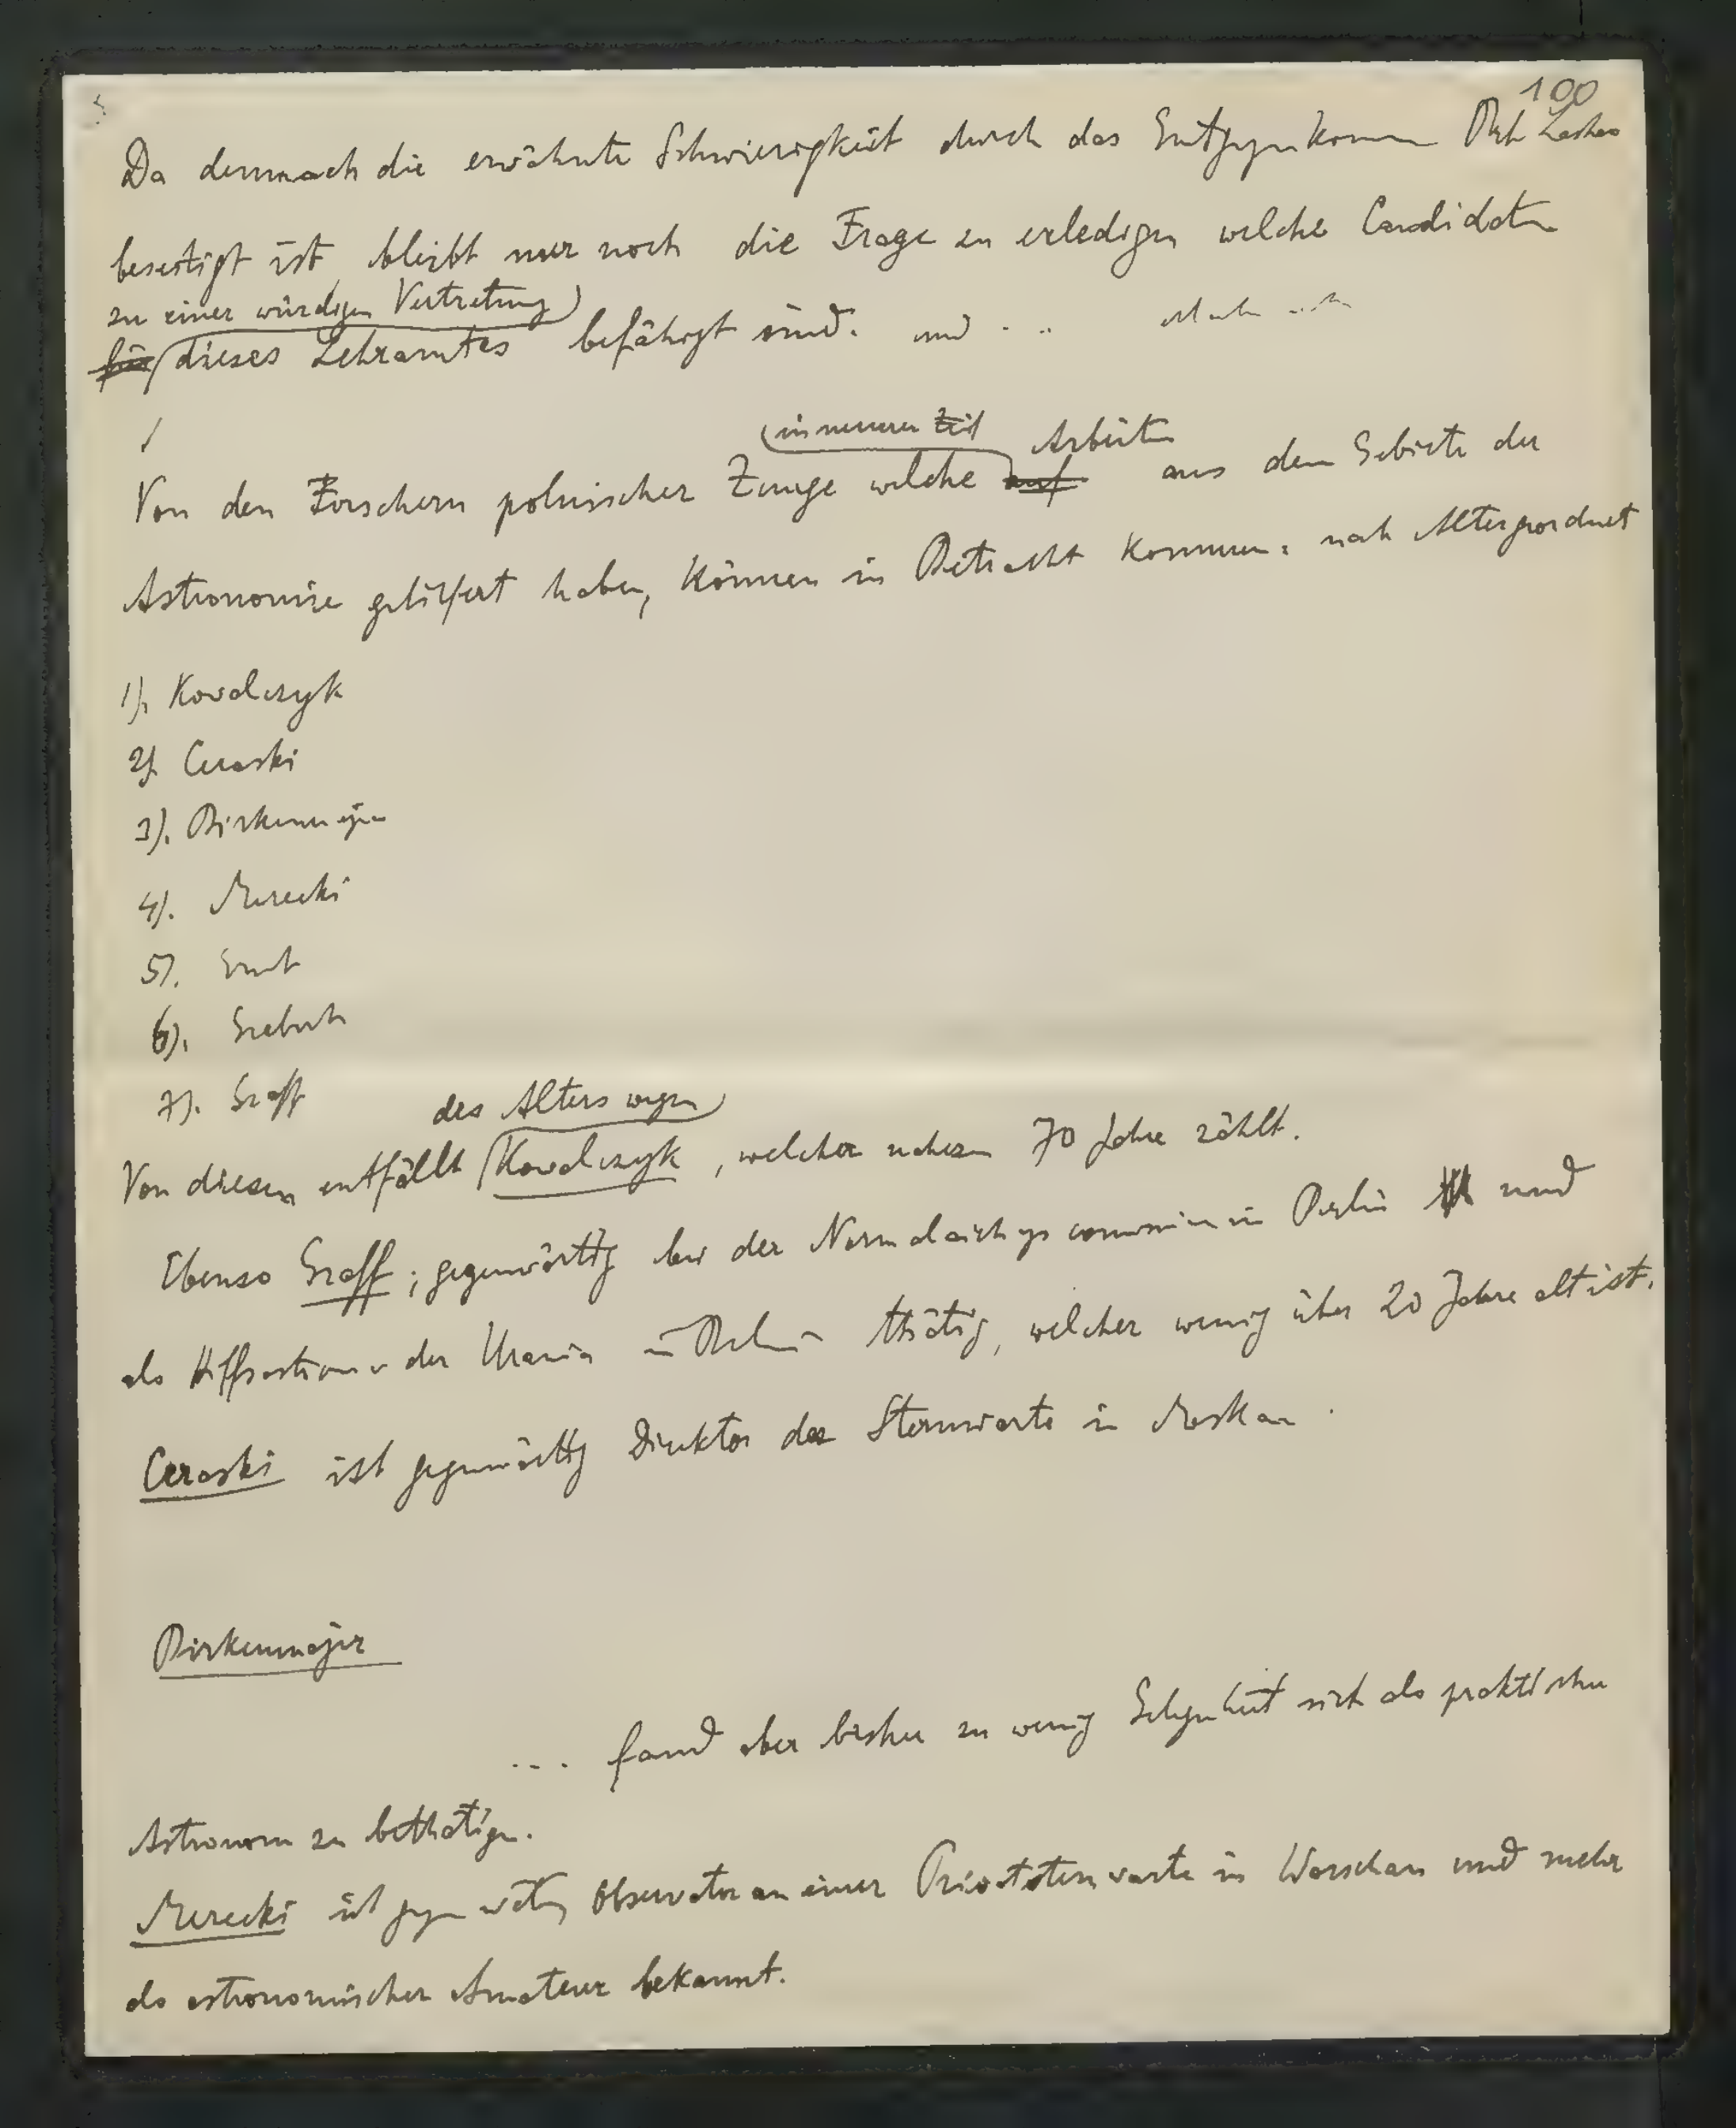 100
Da demnach die erwähnte Schwierigkeit durch das Entgegenkommen
beseitigt ist, bleibt nur noch die Frage zu erledigen welche Candidaten
zu einer würdigen Vertretung
für dieses Lehramtes befähigt sind. und . . .
in neuerer Zeit Arbeiten
Von den Forschern polnischer Zunge welche auf aus dem Gebiete der
Astronomie geliefert haben, können in Betracht kommen: nach Alter geordnet
1). Kowalczyk
2). Ceraski
3). Birkenmajer
4). Merecki
5). Ernst
6). Grabowski
7). Graff
des Alters wegen
Von diesen entfällt Kowalczyk, welcher nahezu 70 Jahre zählt.
Ebenso Graff; gegenwärtig bei der Normalaichungscommission in Berlin und
als Hilfsastronom der Urania in Berlin thätig, welcher wenig über 20 Jahre alt ist.
Ceraski ist gegenwärtig Direktor der Sternwarte in Moskau.
Birkenmajer
... fand aber bisher zu wenig Gelegenheit sich als praktischer
Astronom zu bethätigen.
Merecki ist gegenwärtig Observator an einer Privatsternwarte in Warschau und mehr
als astronomischer Amateur bekannt.